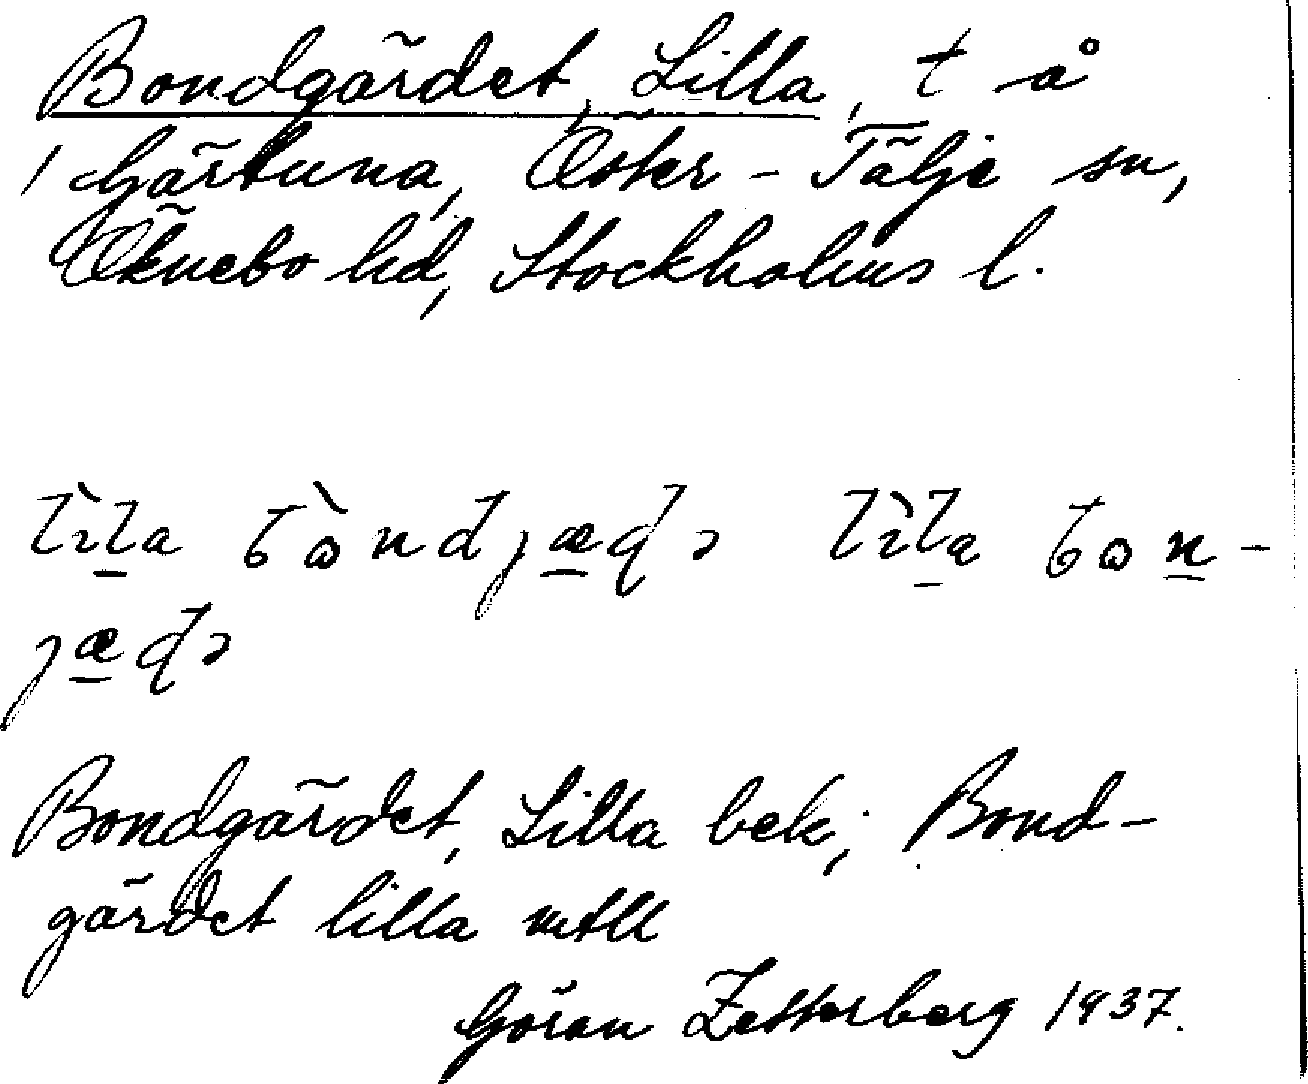 Bondgärdet, Lilla, t å
Gärtuna, Öster-Tälje sn,
Öknebo hd, Stockholms l.
lìla bòndjæḍə lìla bon-
jæḍə
Bondgärdet, Lilla bek; Bond-
gärdet lilla mtll
Göran Zetterberg 1937.